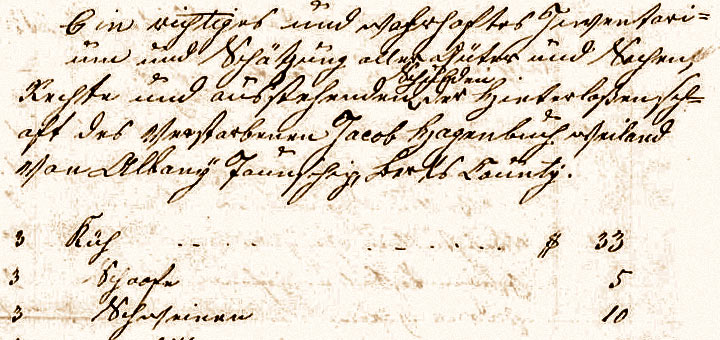 Ein richtiges und wahrhaftes Inventari=
um und Schätzung aller Güter und Sachen,
Rechte und ausstehenden Schulden der Hinterlaßensch=
aft des Verstorbenen Jacob Hagenbuch weiland
von Albany Taunschip, Berks County.
3 Küh . . . . . . . . . . $ 33
3 Schaafe 5
3 Schweinen 10